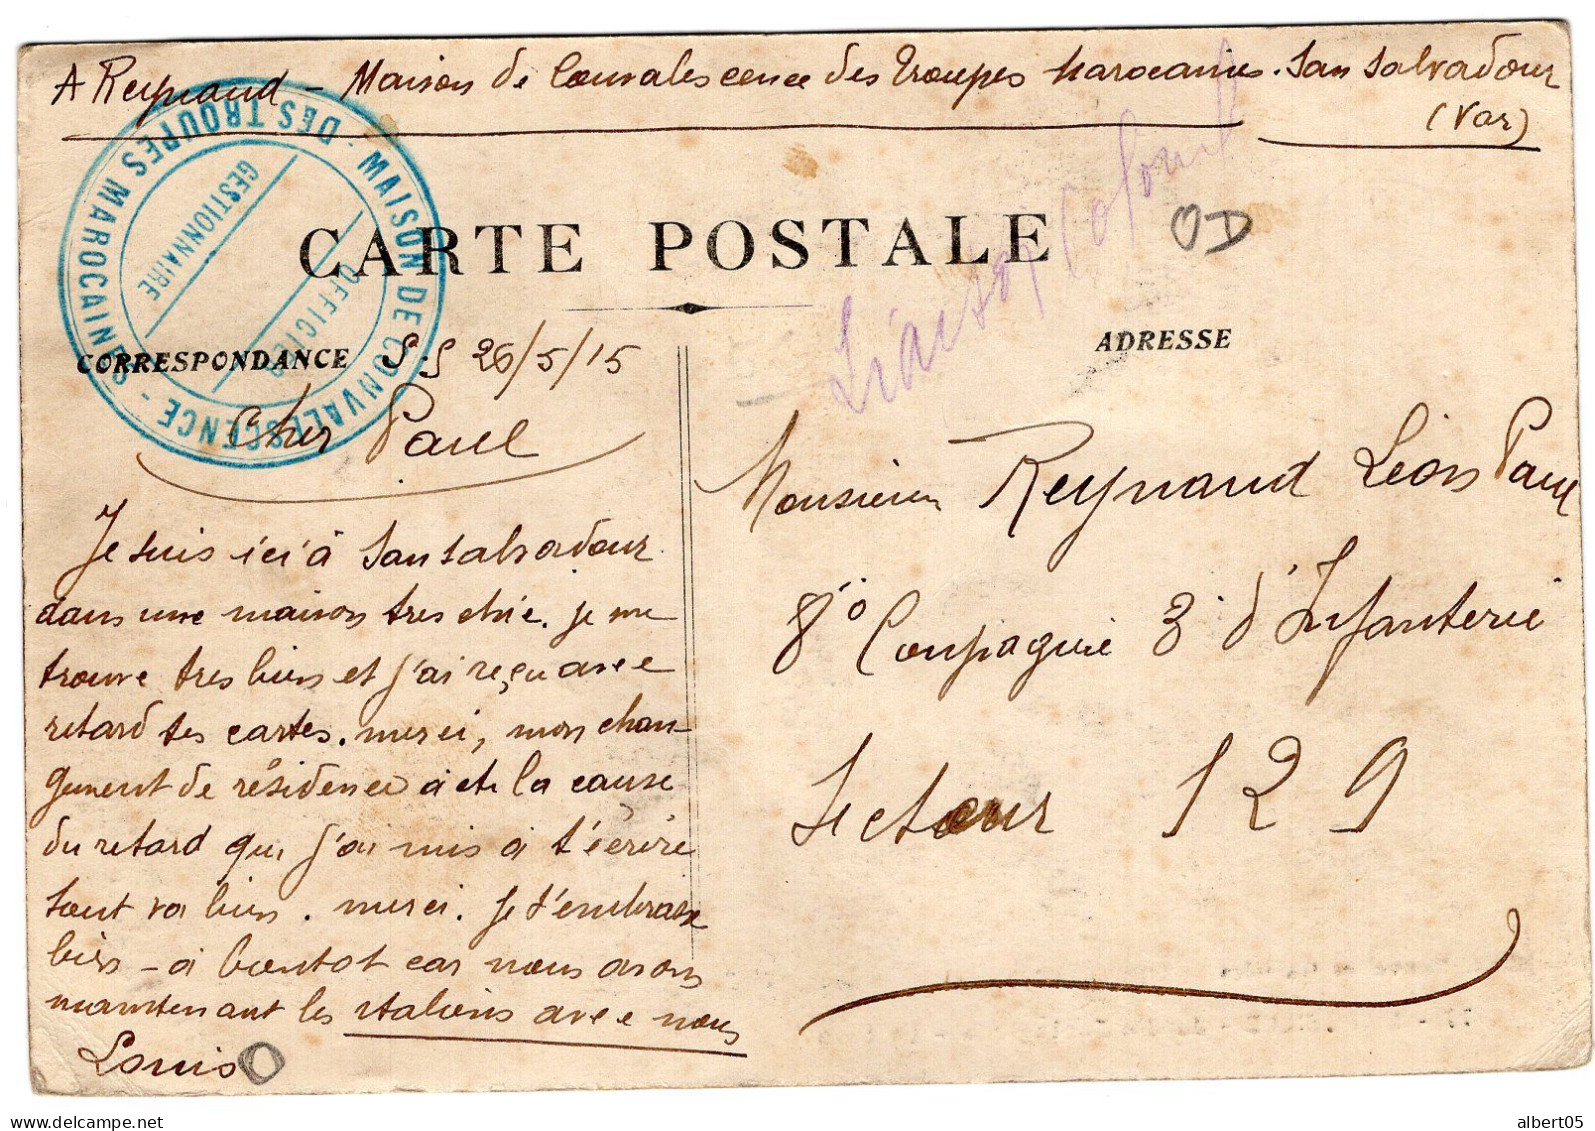 A Reynaud - Maison de Convalescence des Troupes Marocaines. San Salvadour
(Var)
MAISON DE CONVALESCENCE - DES TROUPES MAROCAINES -
OFFICIER
GESTIONNAIRE
CARTE POSTALE
OD
CORRESPONDANCE
S.S 26/5/15
ADRESSE
Cher Paul
Je suis ici à San Salvadour
dans une maison tres chic. je me
trouve tres bien et j'ai reçu avec
retard tes cartes. merci, mon chan-
gement de résidence a ete la cause
du retard que j'ai mis a t'écrire
tout va bien. merci. Je t'embrasse
bien - a bientot car nous avons
maintenant les italiens avec nous
Louis
Monsieur Reynaud Léon Paul
8° Compagnie 3 d'Infanterie
Secteur 129
albert05
delcampe.net